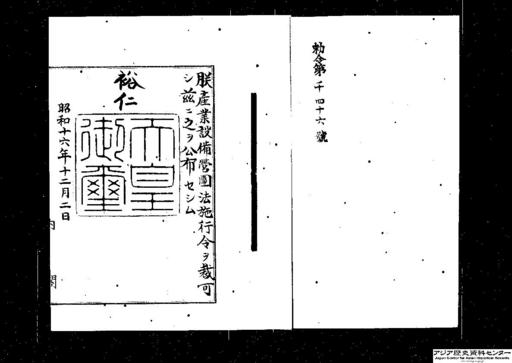 勅令第千四十六號
朕産業設備營團法施行令ヲ裁可
シ茲ニ之ヲ公布セシム
裕仁
天皇御璽
昭和十六年十二月二日
内閣
アジア歴史資料センター
Japan Center for Asian Historical Records